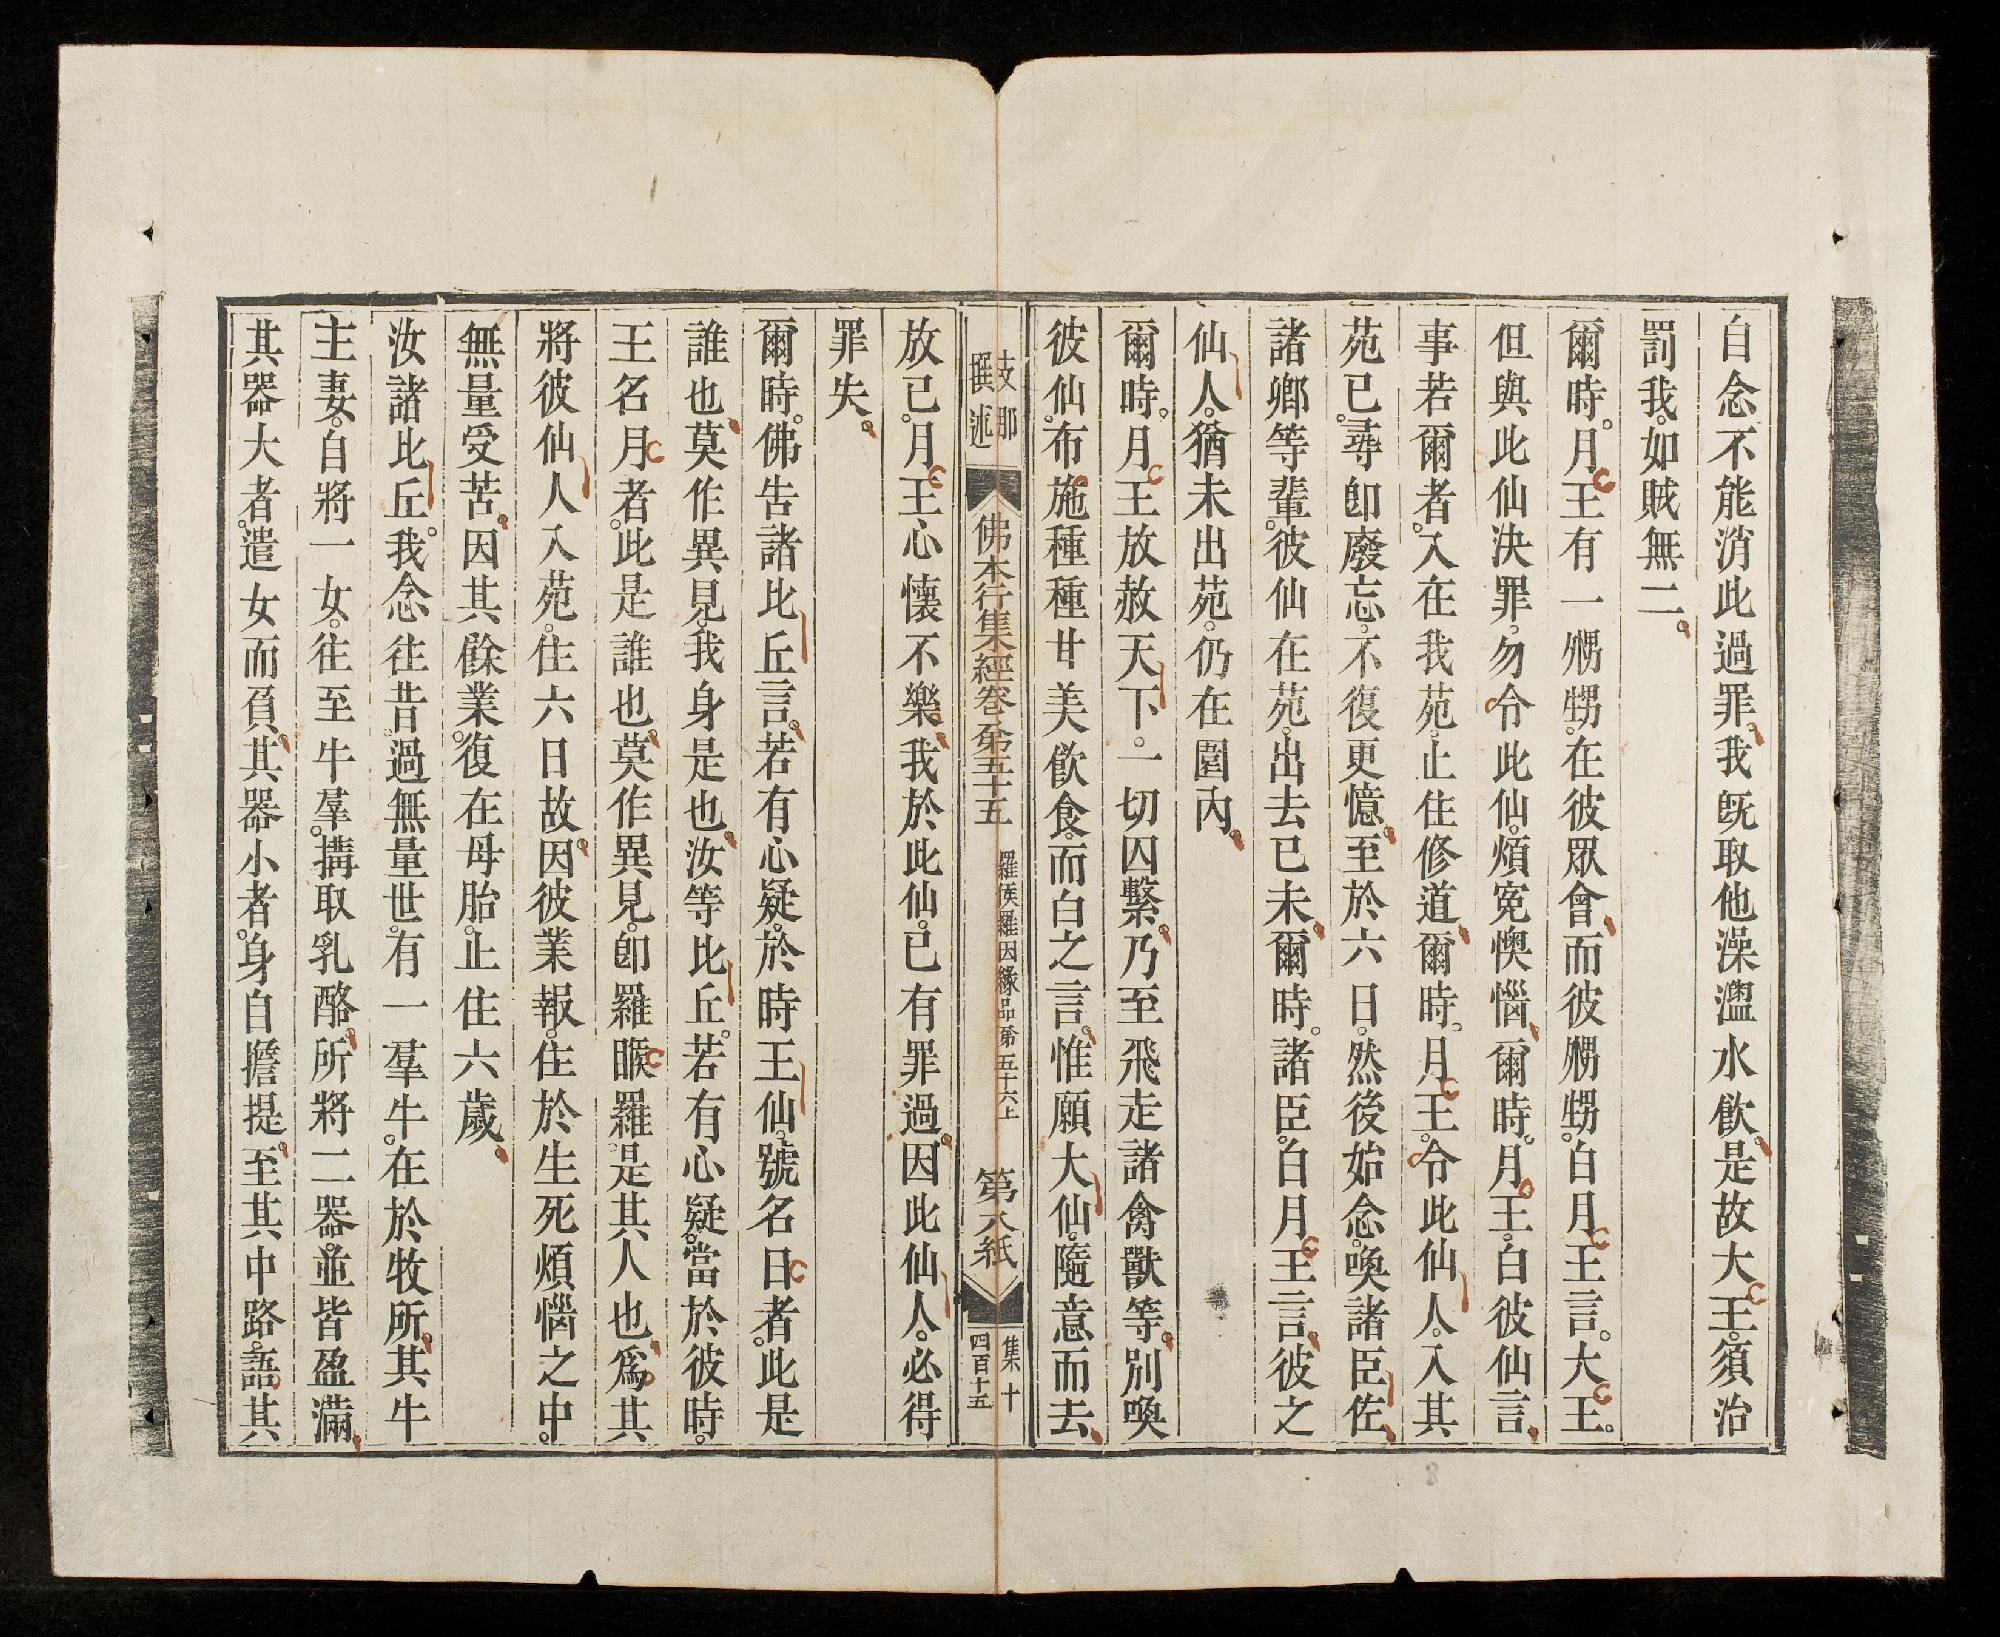 自念不能消此過罪。我既取他澡灌水飲。是故大王。須治
罰我。如賊無二。
爾時。月王有一外甥。在彼眾會。而彼外甥。白月王言。大王。
但與此仙決罪。勿令此仙。煩冤懊惱。爾時。月王。白彼仙言。
事若爾者。入在我苑。止住修道。爾時。月王。令此仙人。入其
苑已。尋即廢忘。不復更憶。至於六日。然後始念。喚諸臣佐。
諸鄉等輩。彼仙在苑。出去已未。爾時。諸臣。白月王言。彼之
仙人。猶未出苑。仍在園內。
爾時。月王放赦天下。一切囚繫。乃至飛走諸禽獸等。別喚
彼仙。布施種種甘美飲食。而白之言。惟願大仙。隨意而去。
支那
撰述
佛本行集經卷第五十五
羅睺羅因緣品第五十六上
第八紙
集十
四百十五
放已。月王心懷不樂。我於此仙。已有罪過。因此仙人。必得
罪失。
爾時。佛告諸比丘言。若有心疑。於時王仙。號名日者。此是
誰也。莫作異見。我身是也。汝等比丘。若有心疑。當於彼時。
王名月者。此是誰也。莫作異見。即羅睺羅。是其人也。為其
將彼仙人入苑。住六日故。因彼業報。住於生死煩惱之中。
無量受苦。因其餘業。復在母胎。止住六歲。
汝諸比丘。我念往昔。過無量世。有一羣牛。在於牧所。其牛
主妻。自將一女。往至牛羣。搆取乳酪。所將二器。並皆盈滿。
其器大者。遣女而負。其器小者。身自擔提。至其中路。語其